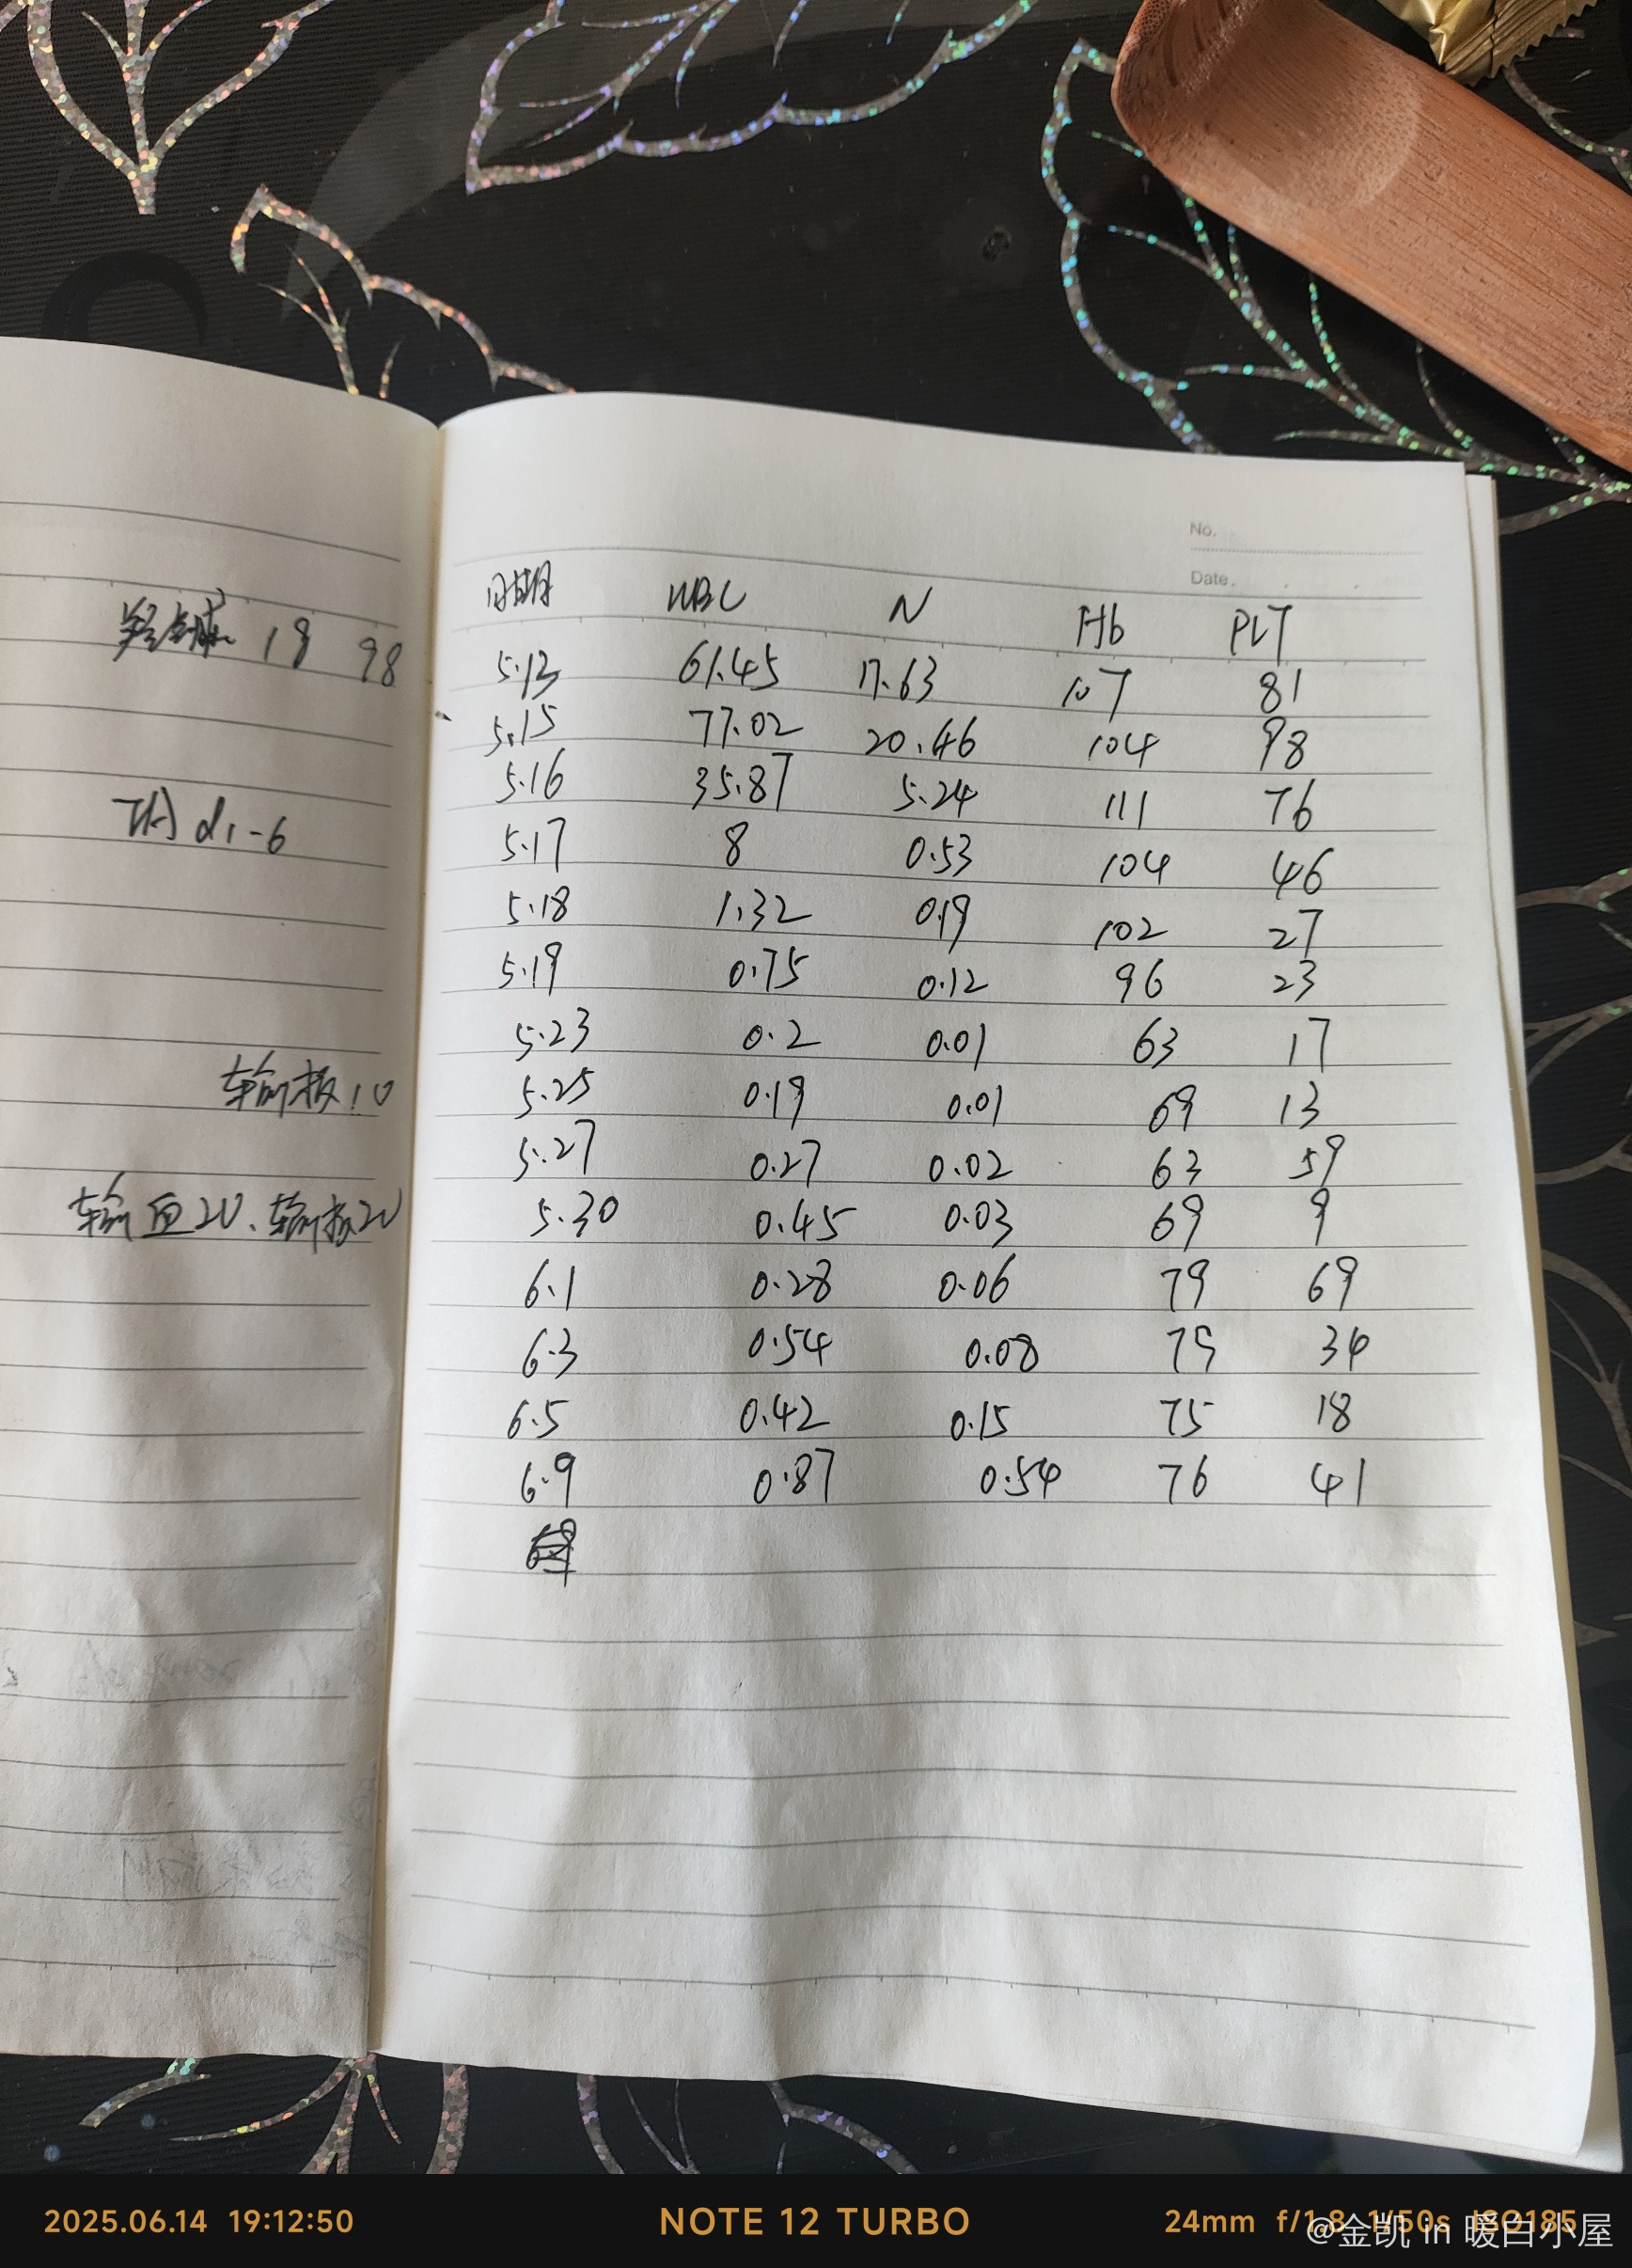 No.
Date.
日期 WBC N Hb PLT
5.13 61.45 17.63 107 81
5.15 77.02 20.46 104 98
5.16 35.87 5.24 111 76
5.17 8 0.53 104 46
5.18 1.32 0.19 102 27
5.19 0.75 0.12 96 23
5.23 0.2 0.01 63 17
5.25 0.19 0.01 69 13
5.27 0.27 0.02 63 59
5.30 0.45 0.03 69 9
6.1 0.28 0.06 79 69
6.3 0.54 0.08 75 34
6.5 0.42 0.15 75 18
6.9 0.87 0.54 76 41
18 98
d1-6
输板1U
输血2U、输板2U
2025.06.14 19:12:50
NOTE 12 TURBO
24mm f/1.8 1/50s ISO185
@金凯 in 暖白小屋